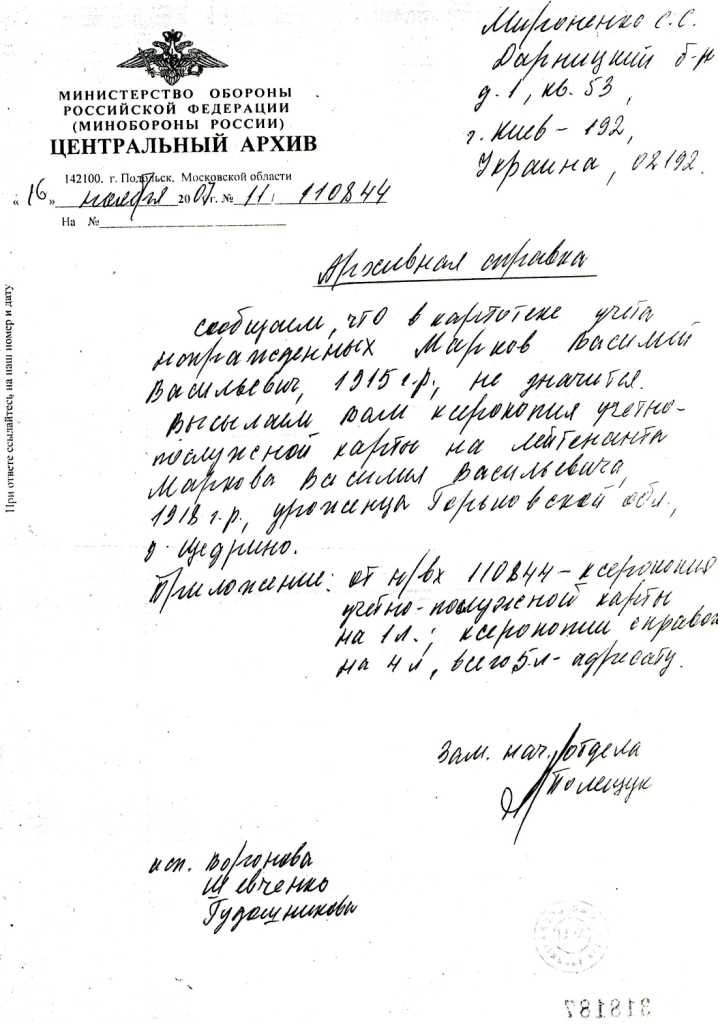 Мироненко С.С.
Дарницкий б-р
д. 1, кв. 53,
г. Киев - 192,
Украина, 02192.
МИНИСТЕРСТВО ОБОРОНЫ
РОССИЙСКОЙ ФЕДЕРАЦИИ
(МИНОБОРОНЫ РОССИИ)
ЦЕНТРАЛЬНЫЙ АРХИВ
142100. г. Подольск, Московской области
«16» ноября 2007 г. № 11 / 110844
На №
При ответе ссылайтесь на наш номер и дату
Архивная справка
Сообщаем, что в картотеке учета
награжденных Марков Василий
Васильевич, 1915 г.р., не значится.
Высылаем Вам ксерокопия учетно-
послужной карты на лейтенанта
Маркова Василия Васильевича,
1918 г.р., уроженца Горьковской обл.,
д. Щедрино.
Приложение: от н/вх 110844 - ксерокопия
учетно-послужной карты
на 1 л.; ксерокопии справок
на 4 л, всего 5 л - адресату.
Зам. нач. отдела
Полещук
исп. Воронова
Шевченко
Гудошникова
318187